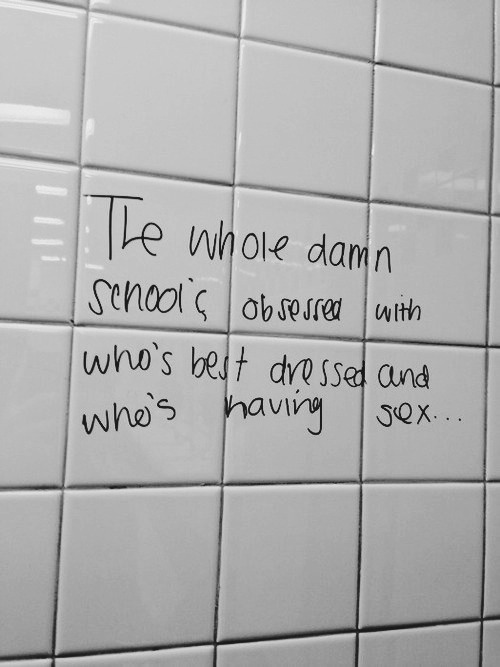 The whole damn
school's obsessed with
who's best dressed and
who's having sex...